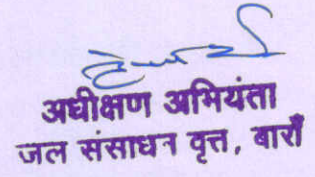 अधीक्षण अभियंता
जल संसाधन वृत्त, बाराँ